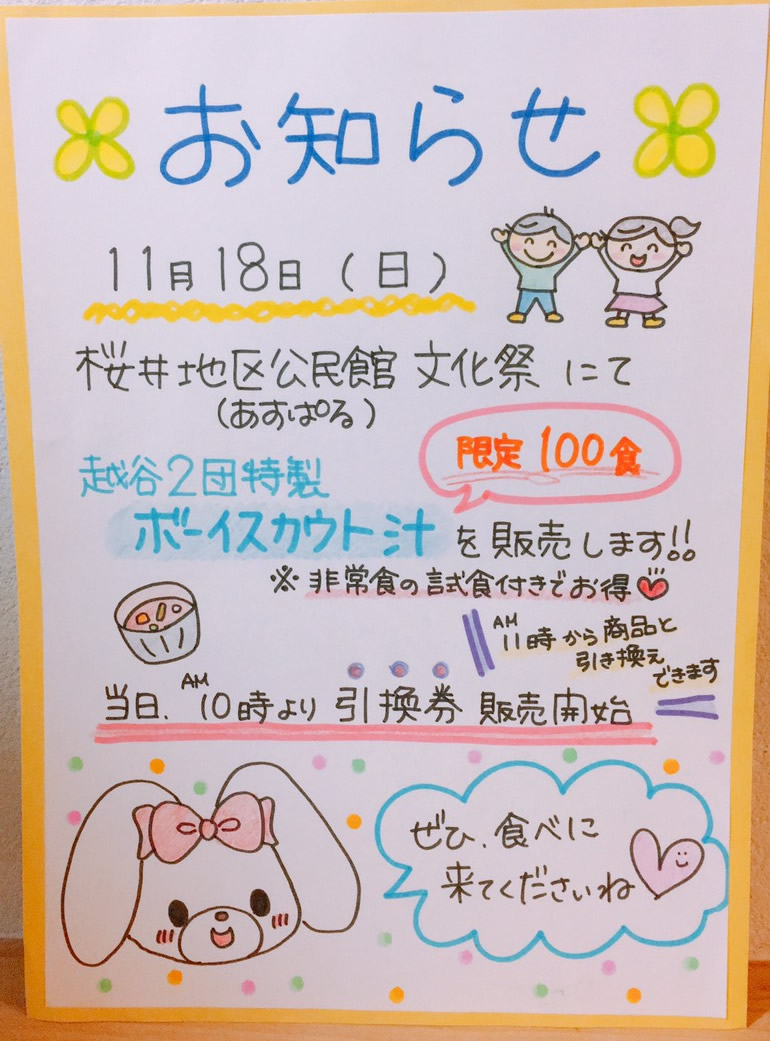 お知らせ
11月18日(日)
桜井地区公民館 文化祭 にて
(あすぱる)
限定100食
越谷2団特製
ボーイスカウト汁 を販売します!!
※非常食の試食付きでお得
AM
11時から商品と
引き換え
できます
当日、AM10時より引換券 販売開始
ぜひ、食べに
来てくださいね